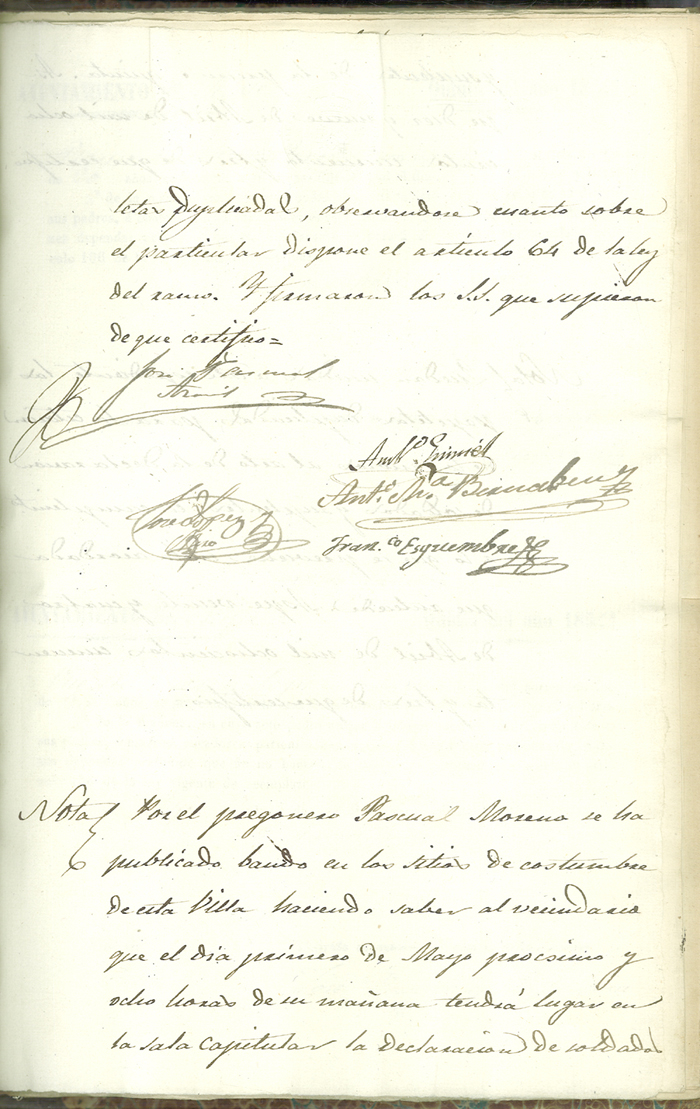 letas duplicadas, observandose cuanto sobre
el particular dispone el artículo 64 de la ley
del ramo. Y firmaron los S.S. que supieron
de que certifico=
José Pascual
Anto. 
Anto. Ma. Bernabeu
José López
Franco. Esquembre
Nota Por el pregonero Pascual Moreno se ha
publicado bando en los sitios de costumbre
de esta Villa haciendo saber al vecindario
que el día primero de Mayo procsimo y
ocho horas de su mañana tendrá lugar en
la sala capitular la declaracion de soldados